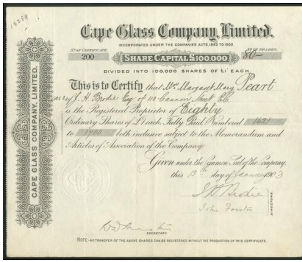 Cape Glass Company, Limited.
INCORPORATED UNDER THE COMPANIES ACTS, 1862 TO 1900
200
80
SHARE CAPITAL £100,000
DIVIDED INTO 100,000 SHARES OF £1 EACH.
This is to Certify that Mrs Margaret Mary Peart
is the Registered Proprietor of Eighty
Ordinary Shares of £1 each, Fully Paid Numbered
to both inclusive subject to the Memorandum and
Articles of Association of the Company.
Given under the Common Seal of the Company,
this day of January 1903
John
DIRECTORS
SECRETARY
NOTE.-NO TRANSFER OF THE ABOVE SHARES CAN BE REGISTERED WITHOUT THE PRODUCTION OF THIS CERTIFICATE.
CAPE GLASS COMPANY, LIMITED.